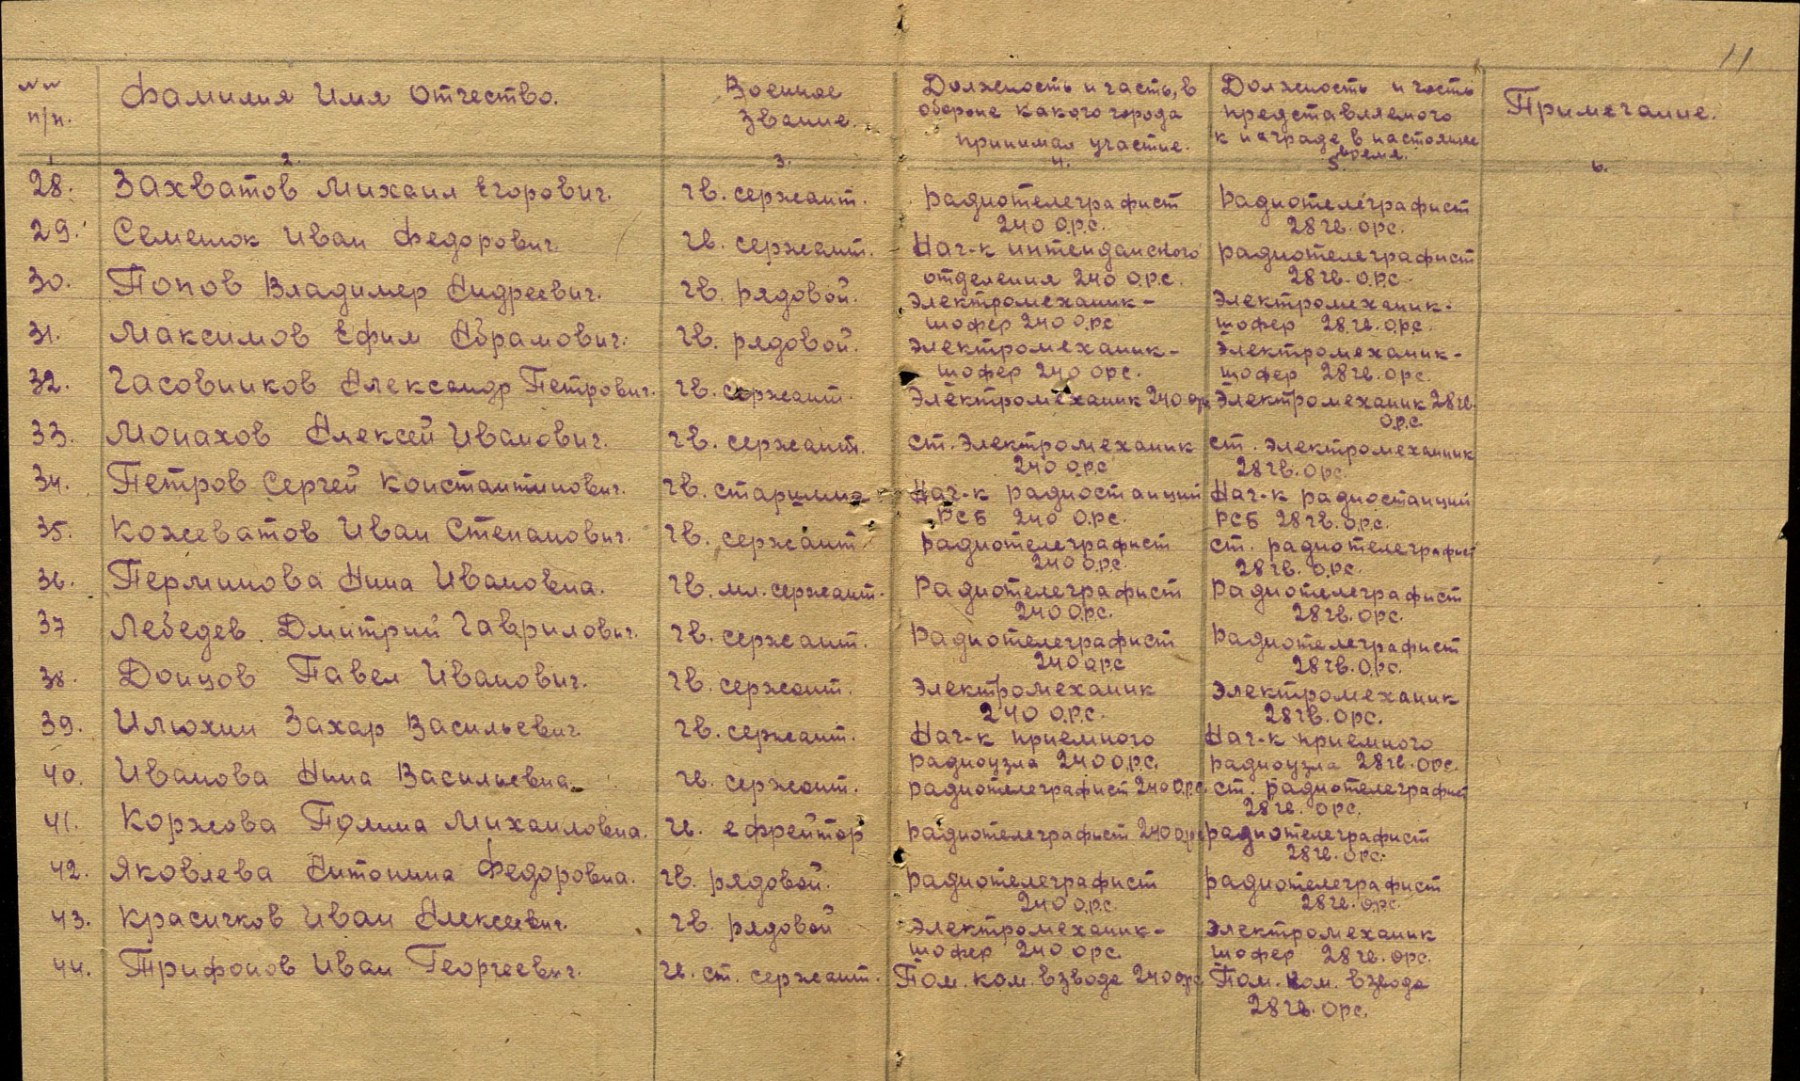 11
№№ п/п. Фамилия Имя Отчество. Военное звание. Должность и часть, в обороне какого города принимал участие. Должность и часть представляемого к награде в настоящее время. Примечание.
1 2. 3. 4. 5. 6.
28. Захватов Михаил Егорович. гв. сержант. радиотелеграфист 240 О.Р.С. радиотелеграфист 28 гв. орс.
29. Семенюк Иван Федорович. гв. сержант. Нач-к интенданского отделения 240 О.Р.С. радиотелеграфист 28 гв. О.Р.С.
30. Попов Владимер Андреевич. гв. рядовой. Электромеханик-шофер 240 О.Р.С Электромеханик-шофер 28 гв. О.Р.С.
31. Максимов Ефим Абрамович. гв. рядовой. Электромеханик-шофер 240 орс. Электромеханик-шофер 28 гв. орс.
32. Часовников Александр Петрович. гв. сержант. Электромеханик 240 орс Электромеханик 28 гв. О.Р.С.
33. Монахов Алексей Иванович. гв. сержант. ст. электромеханик 240 О.Р.С ст. электромеханик 28 гв. орс.
34. Петров Сергей Константинович. гв. старшина Нач-к радиостанций РСБ 240 О.Р.С. Нач-к радиостанций РСБ 28 гв. О.Р.С.
35. Кожеватов Иван Степанович. гв. сержант радиотелеграфист 240 О.Р.С. ст. радиотелеграфист 28 гв. О.Р.С.
36. Перминова Нина Ивановна. гв. мл. сержант. Радиотелеграфист 240 О.Р.С. Радиотелеграфист 28 гв. орс.
37 Лебедев Дмитрий Гаврилович. гв. сержант. Радиотелеграфист 240 орс Радиотелеграфист 28 гв. О.Р.С.
38. Донцов Павел Иванович. гв. сержант. Электромеханик 240 О.Р.С. Электромеханик 28 гв. орс.
39. Илюхин Захар Васильевич. гв. сержант. Нач-к приемного радиоузла 240 О.Р.С. Нач-к приемного радиоузла 28 гв. орс.
40. Иванова Нина Васильевна. гв. сержант. радиотелеграфист 240 О.Р.С. ст. радиотелеграфист 28 гв. орс.
41. Коржова Полина Михаиловна. гв. ефрейтор радиотелеграфист 240 орс радиотелеграфист 28 гв. орс.
42. Яковлева Антонина Федоровна. гв. рядовой. радиотелеграфист 240 О.Р.С. радиотелеграфист 28 гв. орс.
43. Красичков Иван Алексеевич. гв. рядовой Электромеханик-шофер 240 орс. Электромеханик шофер 28 гв. орс.
44. Трифонов Иван Георгеевич. гв. ст. сержант. Пом. ком. взвода 240 орс Пом. ком. взвода 28 гв. орс.